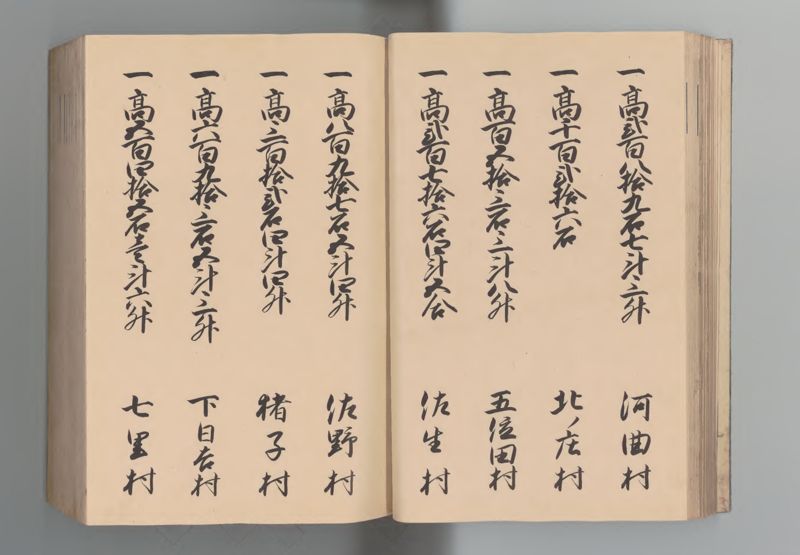 一 高弐百八拾九石七斗三升 河曲村
一 高千百弐拾六石 北ノ庄村
一 高百五拾三石三斗八升 五位田村
一 高弐百七拾六石四斗五合 佐生村
一 高八百九拾七石五斗四升 佐野村
一 高三百拾弐石四斗四升 猪子村
一 高六百九拾三石五斗三升 下日吉村
一 高五百四拾五石壱斗六升 七里村